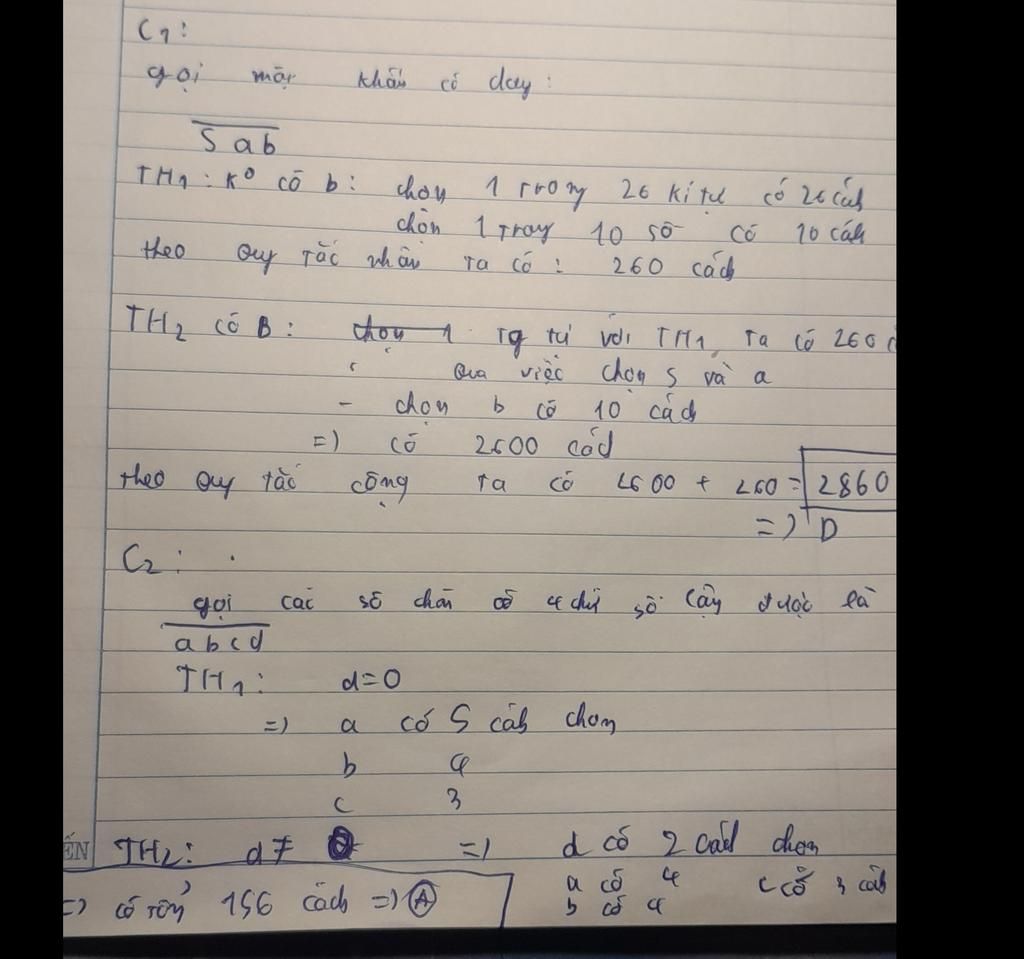 C1:
gọi mật khẩu có dạy:
Sab
TH1: K° có b: chọn 1 trong 26 kí tự có 26 cách
chọn 1 trong 10 số có 10 cách
theo quy tắc nhân ta có: 260 cách
TH2 có B: chọn 1 tg tự với TH1, ta có 260 c
qua việc chọn S và a
- chọn b có 10 cách
=> có 2600 cách
theo quy tắc cộng ta có 2600 + 260 = 2860
=> D
C2:
gọi các số chẵn có 4 chữ số lập được là
abcd
TH1: d=0
=> a có 5 cách chọn
b 4
c 3
ẾN TH2: d≠0 => d có 2 cách chọn
a có 4 c có 3 cách
b có 4
=> có tổng 156 cách => A